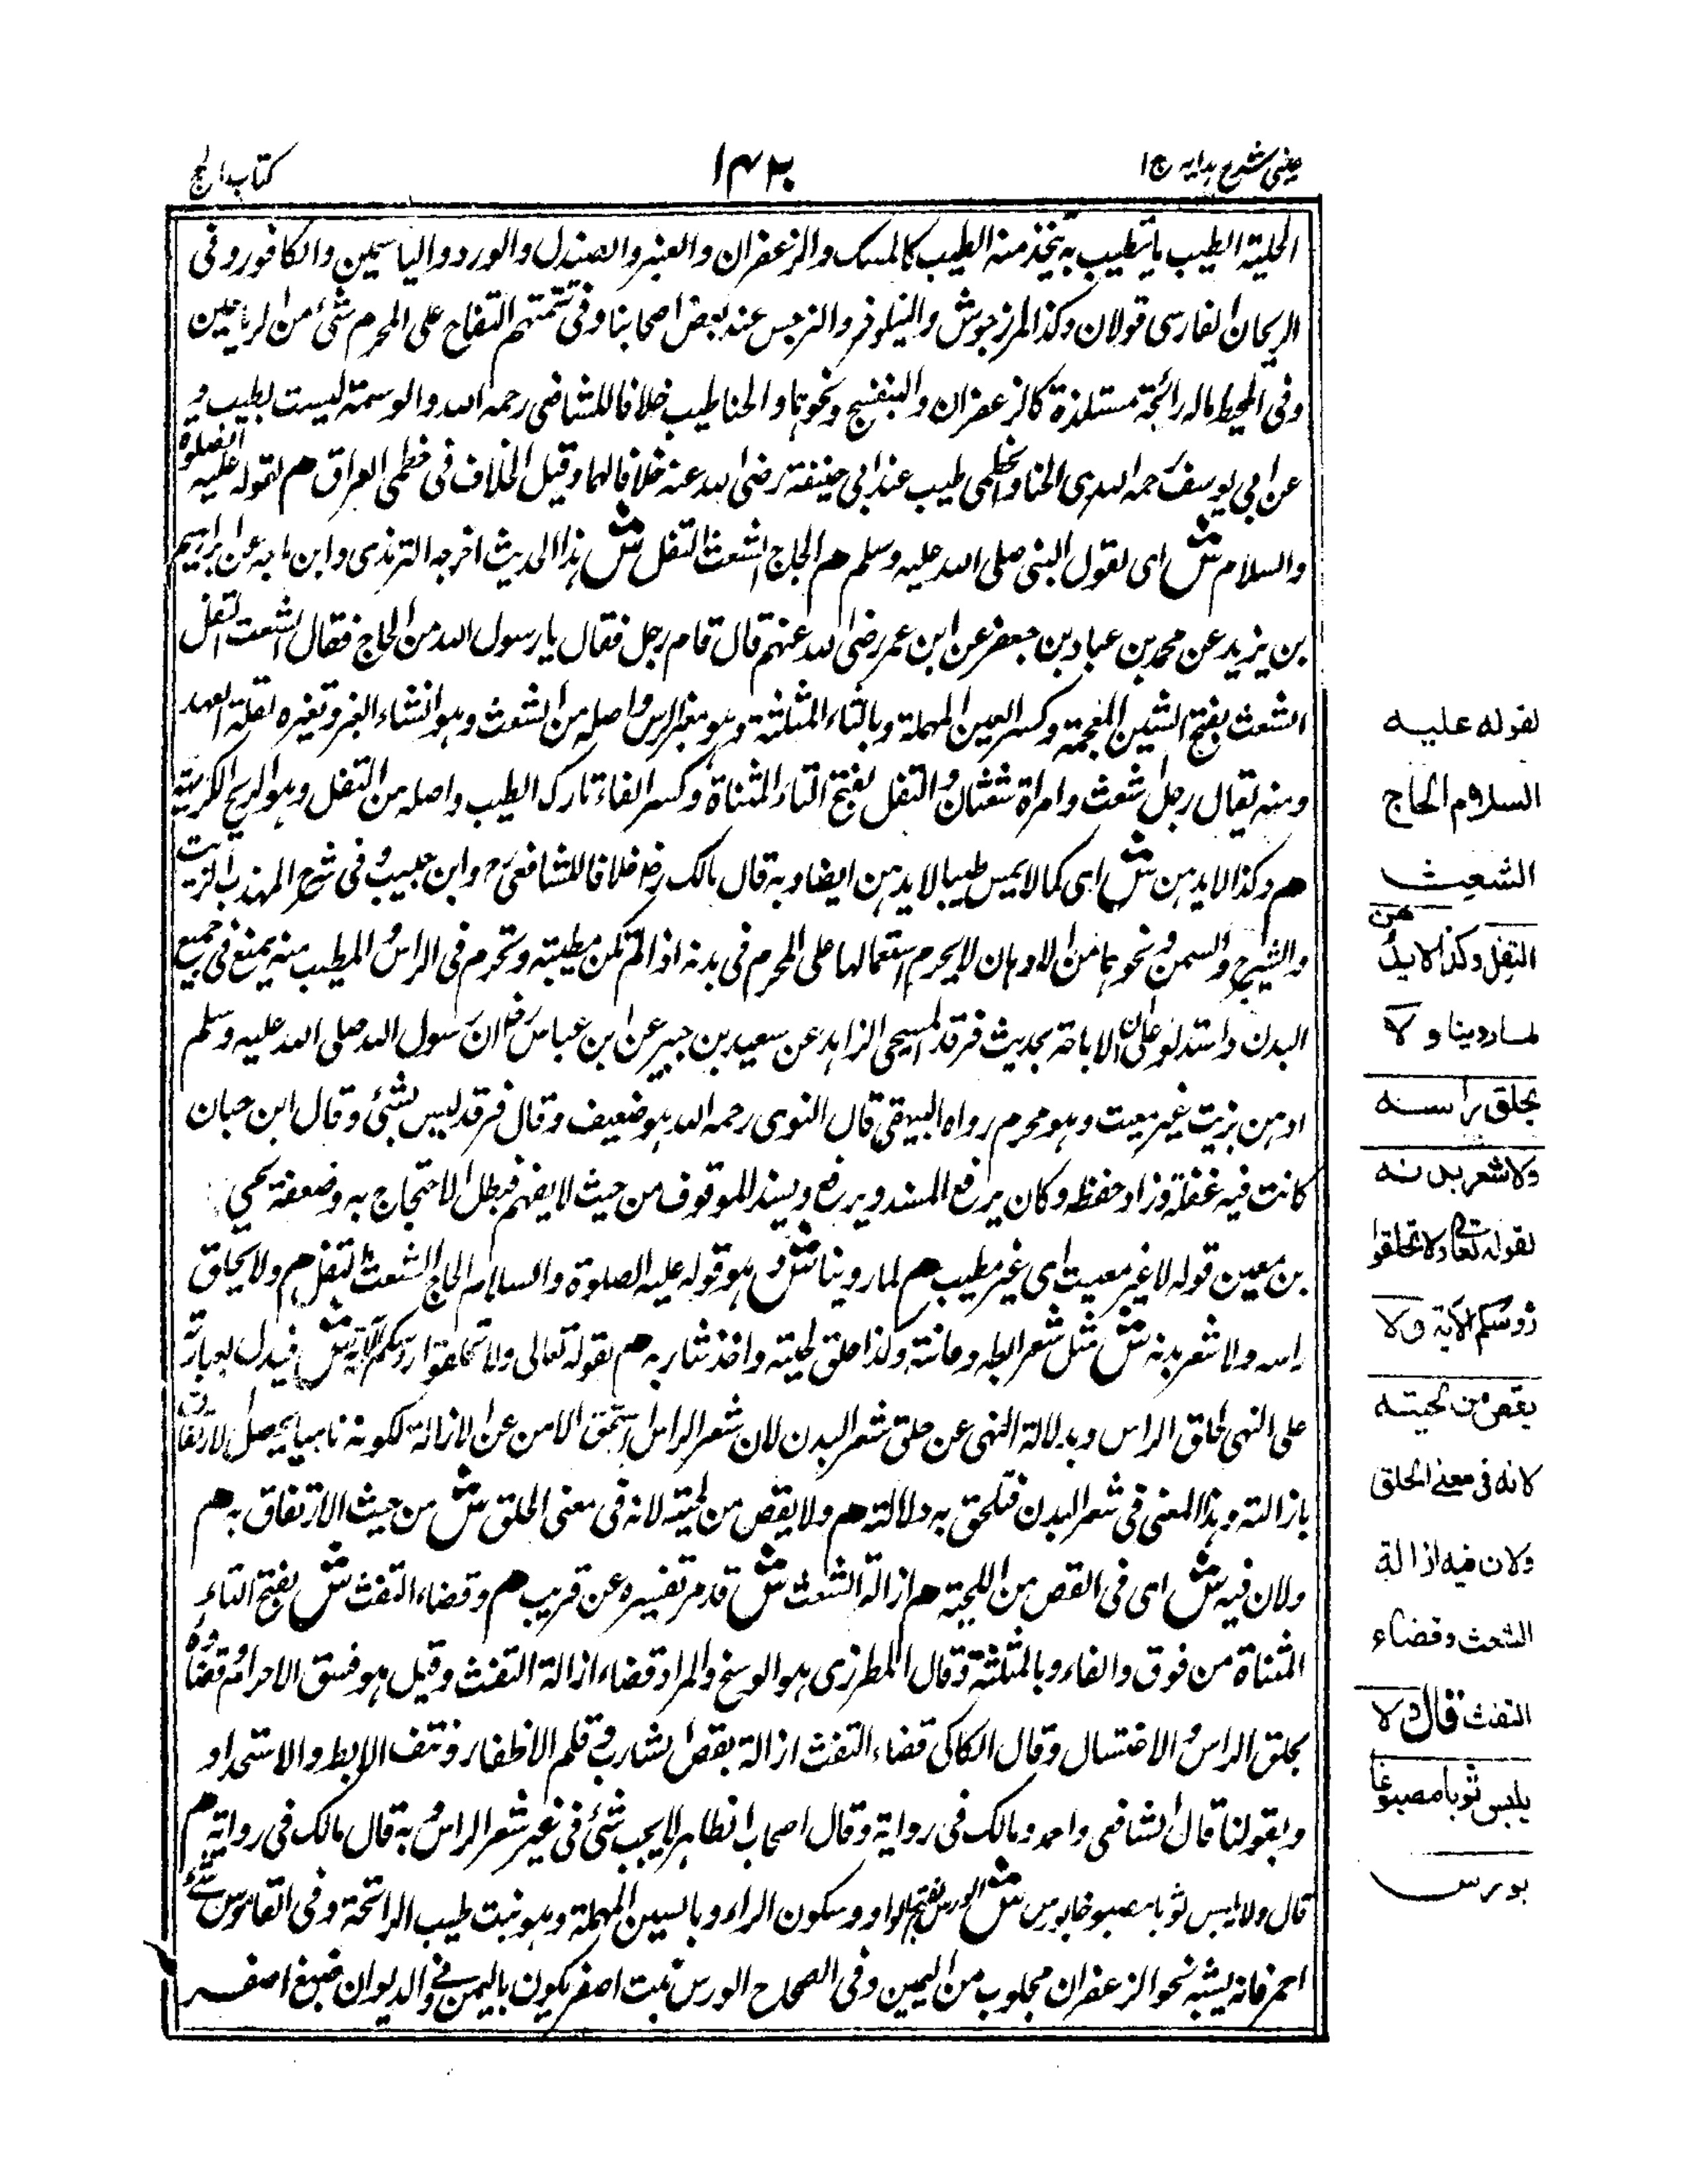 عینی شرح ہدایہ ج ١
١٤٢٠
کتاب الحج
الحلیة الطیب ما یتطیب بہ یتخذ منہ الطیب کالمسک والزعفران والعنبر والصندل والورد والیاسمین والکافور وفی
الریحان الفارسی قولان وکذا المرزجوش والنیلوفر والنرجس عند بعض اصحابنا وفی تتمتہم التفاح علی المحرم شئ من الریاحین
وفی المحیط مالہ رائحة مستلذة کالزعفران والبنفسج ونحوہما والحنا طیب خلافا للشافعی رحمہ اللہ والوسمة لیست بطیب و
عن ابی یوسف رحمہ اللہ الحنا والخطمی طیب عند ابی حنیفة رضی اللہ عنہ خلافا لہما وقیل الخلاف فی خطمی العراق م لقولہ علیہ الصلوة
والسلام ش ای لقول النبی صلی اللہ علیہ وسلم م الحاج الشعث التفل ش ہذا الحدیث اخرجہ الترمذی وابن ماجہ عن ابراہیم
بن یزید عن محمد بن عباد بن جعفر عن ابن عمر رضی اللہ عنہم قال قام رجل فقال یا رسول اللہ من الحاج فقال الشعث التفل
الشعث بفتح الشین المعجمة وکسر العین المہملة وبالثاء المثلثة وہو مغبر الراس واصلہ من الشعث وہو انتشار الغبر وتغیرہ لقلة العہد
ومنہ یقال رجل شعث وامراة شعثان والتفل بفتح التاء المثناة وکسر الفاء تارک الطیب واصلہ من التفل وہو الریح الکریہة
م وکذا لا یدہن ش ای کما لا یمس طیبا لا یدہن ایضا وبہ قال مالک رض خلافا للشافعی رح وابن حبیب وفی شرح المہذب الزیت
والشیرج والسمن ونحوہما من الادہان لا یحرم استعمالہا علی المحرم فی بدنہ اذا لم تکن مطیبة وتحرم فی الراس والمطیب منہ یمنع فی جمیع
البدن واستدلو علی الاباحة بحدیث فرقد السبحی الزاہد عن سعید بن جبیر عن ابن عباس رض ان رسول اللہ صلی اللہ علیہ وسلم
ادہن بزیت غیر مقیت وہو محرم رواہ البیہقی قال النووی رحمہ اللہ ہو ضعیف وقال فرقد لیس بشئ وقال ابن حبان
کانت فیہ غفلة وزاد حفظہ وکان یرفع المسند ویرفع ویسند الموقوف من حیث لا یفہم فبطل الاحتجاج بہ وضعفہ یحیی
بن معین قولہ لا غیر مقیت ای غیر مطیب م لما روینا ش وہو قولہ علیہ الصلوة والسلام الحاج الشعث التفل م ولا یحلق
راسہ ولا شعر بدنہ ش مثل شعر ابطہ وعانتہ وکذا حلق لحیتہ واخذ شاربہ م لقولہ تعالی ولا تحلقوا رؤسکم الآیة ش فیدل بعبارتہ
علی النہی لحلق الراس وبدلالة النہی عن حلق شعر البدن لان شعر الراس استحق الامن عن الازالة لکونہ نامیا یحصل الارتفاق
بازالتہ وہذا المعنی فی شعر البدن فیلحق بہ دلالة م ولا یقص من لحیتہ لانہ فی معنی الحلق ش من حیث الارتفاق بہ م
ولان فیہ ش ای فی القص من اللحیة م ازالة الشعث ش قد مر تفسیرہ عن قریب م وقضاء التفث ش بفتح التاء
المثناة من فوق والفاء وبالمثلثة وقال المطرزی ہو الوسخ والمراد قضاء ازالة التفث وقیل ہو فسق الاحرام وقضاؤہ
بحلق الراس والاغتسال وقال الکاکی قضاء التفث ازالة بقص الشارب وقلم الاظفار ونتف الابط والاستحداد
وبقولنا قال الشافعی واحمد ومالک فی روایة وقال اصحاب الظاہر لا یجب شئ فی غیر شعر الراس وبہ قال مالک فی روایة م
قال ولا یلبس ثوبا مصبوغا بورس ش الورس بفتح الواو وسکون الراء وبالسین المہملة وہو نبت طیب الرائحة وفی القاموس شئ
احمر قانہ یشبہ نحو الزعفران مجلوب من الیمن وفی الصحاح الورس نبت اصفر یکون بالیمن وفی الدیوان صبغ اصفر
لقوله عليه
السلام الحاج
الشعث
التفل وكذا لا يدهن
لما روينا ولا
يحلق راسه
ولا شعر بدنه
لقوله تعالى ولا تحلقوا
رؤسكم الآية ولا
يقص من لحيته
لانه في معنى الحلق
ولان فيه ازالة
الشعث وقضاء
التفث قال ولا
يلبس ثوبا مصبوغا
بورس